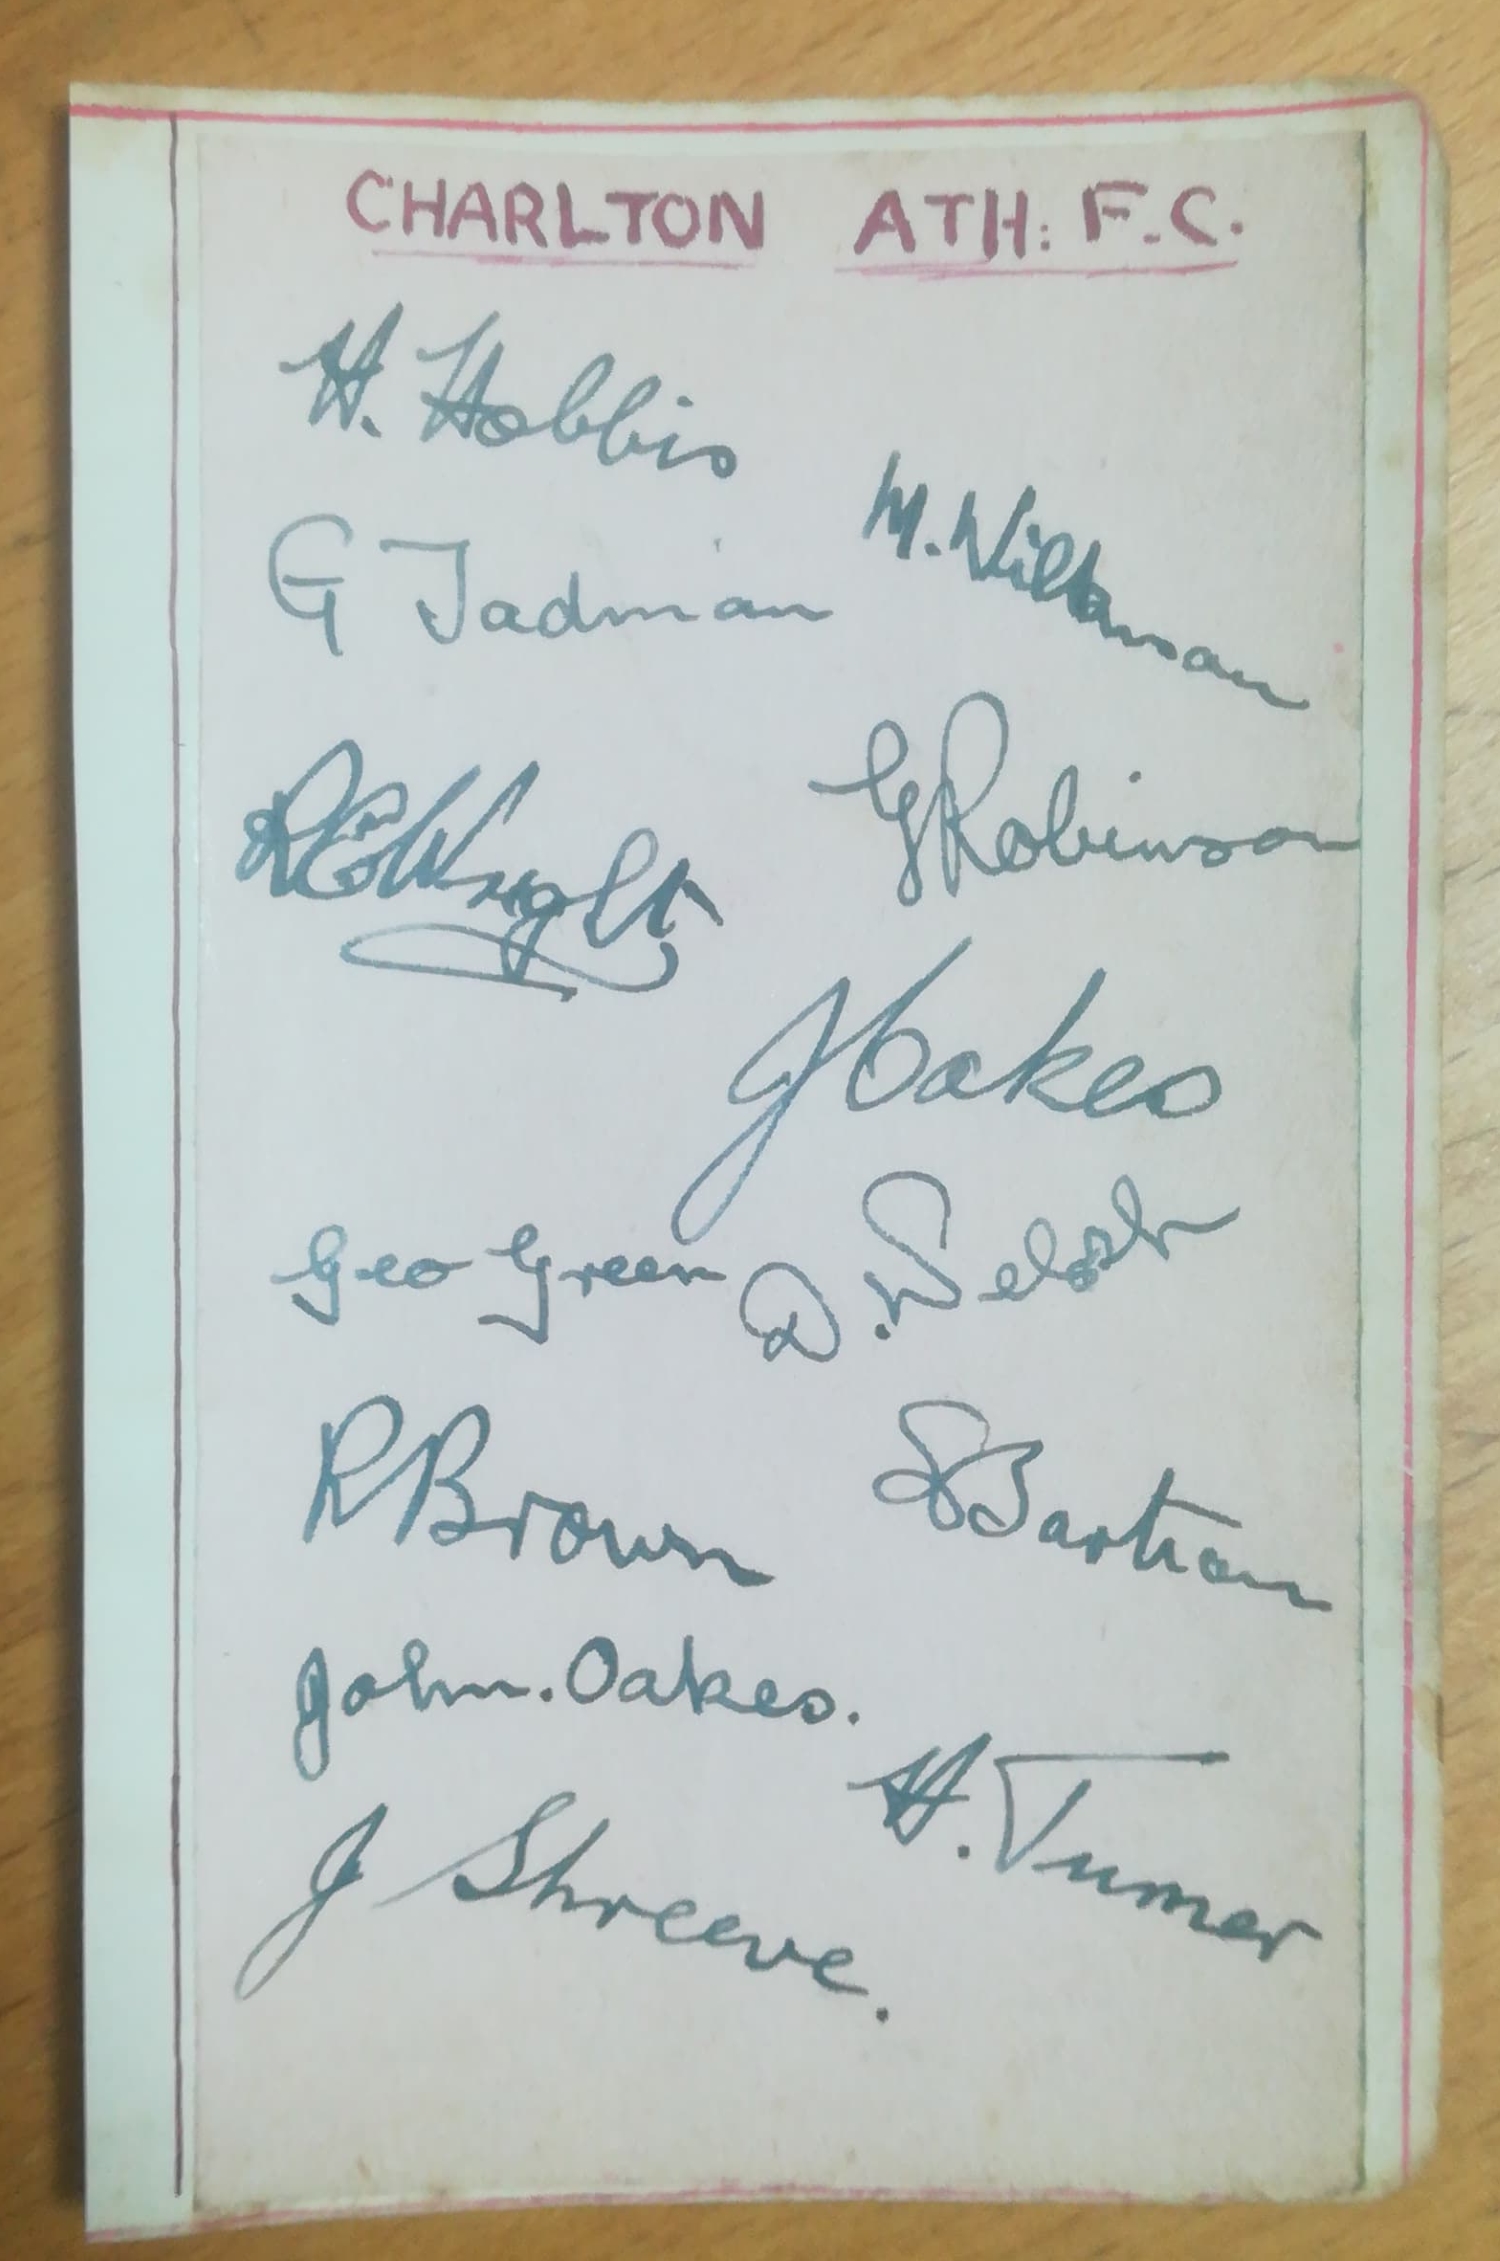 CHARLTON ATH: F.C.
H. Hobbis
M. Wilkman
G Tadman
G Robinson
R E Wright
J Oakes
Geo Green
D. Welsh
R Brown
S Bartram
John. Oakes.
H. Turner
J Shreeve.